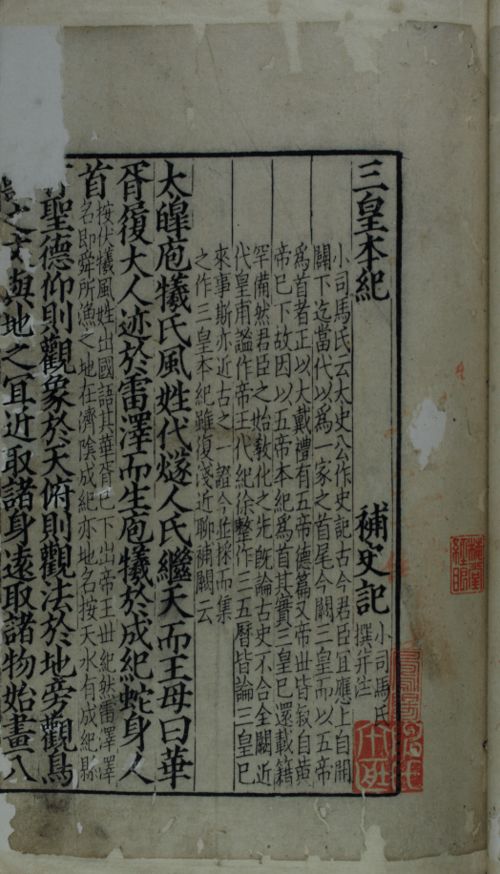 三皇本紀 補史記 小司馬氏
撰并注
小司馬氏云太史公作史記古今君臣宜應上自開
闢下迄當代以為一家之首尾今闕三皇而以五帝
為首者正以大戴禮有五帝德篇又帝世皆叙自黄
帝巳下故因以五帝本紀為首其實三皇巳還載籍
罕備然君臣之始敎化之先旣論古史不合全闕近
代皇甫謐作帝王代紀徐整作三五曆皆論三皇巳
來事斯亦近古之一證今並採而集
之作三皇本紀雖復淺近聊補闕云
太皥庖犧氏風姓代燧人氏繼天而王母曰華
胥履大人迹於雷澤而生庖犧於成紀蛇身人
首 按伏犧風姓出國語其華胥巳下出帝王世紀然雷澤澤
名即舜所漁之地在濟陰成紀亦地名按天水有成紀縣
聖德仰則觀象於天俯則觀法於地旁觀鳥
之文與地之冝近取諸身遠取諸物始畫八